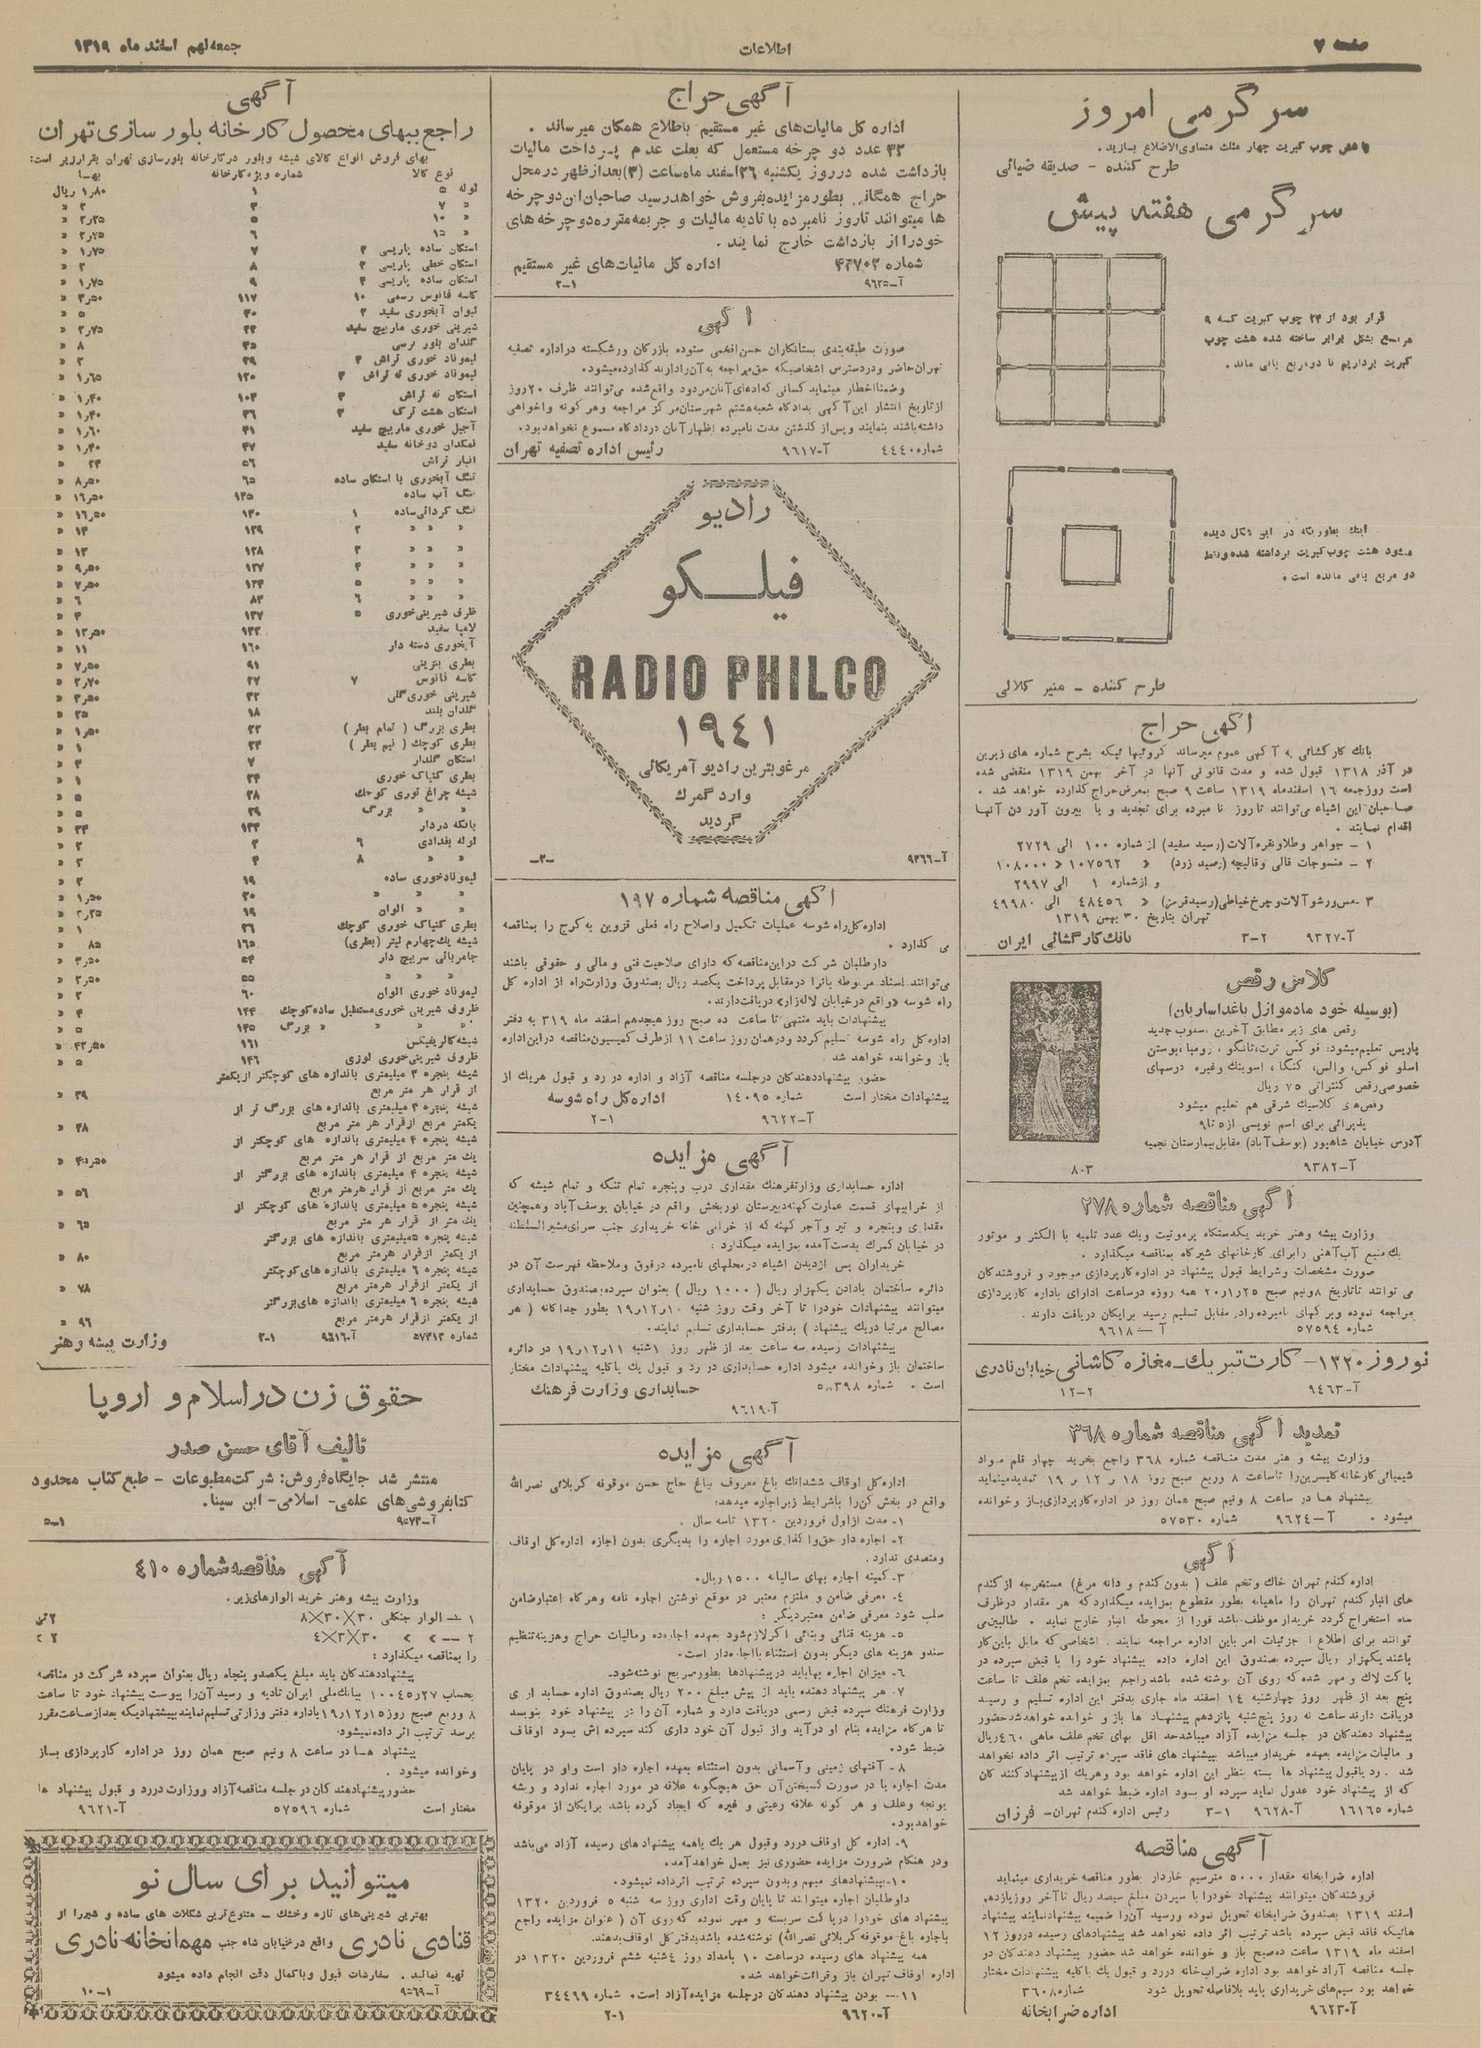 صفحه ۷
اطلاعات
جمعه نهم اسفند ماه ۱۳۱۹
سرگرمی امروز
چوب کبریت چهار مثلث متساوی‌الاضلاع بسازید.
طرح کننده - صدیقه ضیائی
سرگرمی هفته پیش
قرار بود از ۲۴ چوب کبریت که ۹
مربع بشکل برابر ساخته شده هشت چوب
کبریت برداریم تا دو مربع باقی ماند.
اینک بطوریکه در این شکل دیده
میشود هشت چوب کبریت برداشته شده و فقط
دو مربع باقی مانده است
طرح کننده - منیر کلالی
آگهی حراج
صاحبان این اشیاء می‌توانند تا روز نامبرده برای تجدید و یا بیرون آوردن آنها
اقدام نمایند.
۱ - جواهر و طلا و نقره آلات (رسید سفید) از شماره ۱۰۰ الی ۲۷۲۹
۲ - منسوجات قالی و قالیچه (رسید زرد) « ۱۰۷۵۶۲ « ۱۰۸۰۰۰
و از شماره ۱ الی ۲۹۹۷
۳ - مس و رشو آلات و چرخ خیاطی (رسید قرمز) « ۴۸۴۵۶ الی ۴۹۹۸۰
تهران بتاریخ ۳۰ بهمن ۱۳۱۹
آ-۹۳۲۷ ۲-۳ بانک کارگشائی ایران
کلاس رقص
(بوسیله خود مادموازل باغداساریان)
رقص های زیر مطابق آخرین اسلوب جدید
پاریس تعلیم میشود: فوکس ترت، تانگو، رومبا، بوستن
اسلو فوکس، والس، کنگا، اسوینک وغیره درسهای
خصوصی رقص کنتراتی ۷۵ ریال
رقص‌های کلاسیک شرقی هم تعلیم میشود
پذیرائی برای اسم نویسی از ۵ تا ۹
آدرس خیابان شاهپور (یوسف آباد) مقابل بیمارستان نجمیه
آ-۹۳۸۲ ۳-۸
آگهی مناقصه شماره ۲۷۸
وزارت پیشه و هنر خرید یکدستگاه پرموتیت ویک عدد تلمبه با الکتر و موتور
یک منبع آب آهنی را برای کارخانهای شیرگاه بمناقصه میگذارد.
صورت مشخصات و شرایط قبول پیشنهاد در اداره کارپردازی موجود و فروشندگان
شماره ۵۷۵۹۴ آ - ۹۶۱۸
نوروز ۱۳۲۰ - کارت تبریک - مغازه کاشانی خیابان نادری
آ-۹۴۶۳ ۲-۱۲
تمدید آگهی مناقصه شماره ۳۶۸
وزارت پیشه و هنر مدت مناقصه شماره ۳۶۸ راجع بخرید چهار قلم مواد
شیمیائی کارخانه گلیسرین را تا ساعت ۸ وربع صبح روز ۱۸ و ۱۲ و ۱۹ تمدید مینماید
پیشنهاد ها در ساعت ۸ ونیم صبح همان روز در اداره کارپردازی باز و خوانده
میشود. آ-۹۶۲۴ شماره ۵۷۵۳۰
آگهی
اداره گندم تهران خاک و تخم علف (بدون گندم و دانه مرغ) مستخرجه از گندم
های انبار گندم تهران را ماهیانه بطور مقطوع بمزایده میگذارد که هر مقدار در ظرف
ماه استخراج گردد خریدار موظف باشد فورا از محوطه انبار خارج نماید. طالبین می
توانند برای اطلاع از جزئیات امر باین اداره مراجعه نمایند. اشخاصی که مایل باین کار
باشند یکهزار ریال سپرده بصندوق این اداره داده پیشنهاد خود را با قبض سپرده در
پاکت لاک و مهر شده که روی آن نوشته شده باشد راجع بمزایده تخم علف تا ساعت
پنج بعد از ظهر روز چهارشنبه ۱۴ اسفند ماه جاری بدفتر این اداره تسلیم و رسید
دریافت دارند ساعت نه روز پنج‌شنبه پانزدهم پیشنهاد ها باز و خوانده خواهد شد حضور
پیشنهاد دهندگان در جلسه مزایده آزاد میباشد حد اقل بهای تخم علف ماهی ۴۶۰ ریال
و مالیات مزایده بعهده خریدار میباشد بپیشنهاد های فاقد سپرده ترتیب اثر داده نخواهد
شد. رد یا قبول پیشنهاد ها بسته بنظر این اداره خواهد بود و هریک از پیشنهاد کنندگان
که از پیشنهاد خود عدول نماید سپرده او بسود اداره ضبط خواهد شد
شماره ۱۶۱۶۵ آ-۹۶۲۸ ۱-۳ رئیس اداره گندم تهران - فرزان
آگهی مناقصه
اداره ضرابخانه مقدار ۵۰۰۰ متر سیم خاردار بطور مناقصه خریداری مینماید
فروشندگان میتوانند پیشنهاد خود را با سپردن مبلغ سیصد ریال تا آخر روز یازدهم
اسفند ۱۳۱۹ بصندوق ضرابخانه تحویل نموده ورسید آن را ضمیمه پیشنهاد نمایند پیشنهاد
هائیکه فاقد قبض سپرده باشد ترتیب اثر داده نخواهد شد پیشنهادهای رسیده در روز ۱۲
اسفند ماه ۱۳۱۹ ساعت ده صبح باز و خوانده خواهد شد حضور پیشنهاد دهندگان در
جلسه مناقصه آزاد خواهد بود اداره ضرابخانه در رد و قبول یک یا کلیه پیشنهادات مختار
خواهد بود سیم‌های خریداری باید بلافاصله تحویل شود شماره ۳۶۰۸
آ-۹۶۲۳ اداره ضرابخانه
آگهی حراج
اداره کل مالیات‌های غیر مستقیم باطلاع همکان میرساند.
۳۳ عدد دو چرخه مستعمل که بعلت عدم پرداخت مالیات
بازداشت شده در روز یکشنبه ۲۶ اسفند ماه ساعت (۳) بعد از ظهر در محل
حراج همگانی بطور مزایده بفروش خواهد رسید صاحبان این دو چرخه
ها میتوانند تا روز نامبرده با تادیه مالیات و جریمه مقرره دو چرخه های
خود را از بازداشت خارج نمایند.
شماره ۴۳۷۰۳ اداره کل مالیات‌های غیر مستقیم
آ-۹۶۲۵ ۱-۲
آگهی
صورت طبقه‌بندی بستانکاران حسن افخمی ستوده بازرگان ورشکسته در اداره تصفیه
تهران حاضر و در دسترس اشخاصیکه حق مراجعه به آن را دارند گذارده میشود.
وضمنا اخطار مینماید کسانی که ادعای آنان مردود واقع شده می‌توانند ظرف ۲۰ روز
از تاریخ انتشار این آگهی بدادگاه شعبه هشتم شهرستان مرکز مراجعه و هر گونه واخواهی
داشته باشند بنمایند و پس از گذشتن مدت نامبرده اظهار آنان در دادگاه مسموع نخواهد بود.
شماره ۴۴۴۰ آ-۹۶۱۷ رئیس اداره تصفیه تهران
رادیو
فیلکو
RADIO PHILCO
۱۹۴۱
مرغوبترین رادیو آمریکائی
وارد گمرک
گردید
آ-۹۳۶۶ -۳-
آگهی مناقصه شماره ۱۹۷
اداره کل راه شوسه عملیات تکمیل و اصلاح راه فعلی قزوین به کرج را بمناقصه
می گذارد.
داوطلبان شرکت در این مناقصه که دارای صلاحیت فنی و مالی و حقوقی باشند
می‌توانند اسناد مربوطه را در مقابل پرداخت یکصد ریال بصندوق وزارت راه از اداره کل
راه شوسه «واقع در خیابان لاله‌زار» دریافت دارند.
پیشنهادات باید منتهی تا ساعت ده صبح روز هیجدهم اسفند ماه ۳۱۹ به دفتر
اداره کل راه شوسه تسلیم گردد و در همان روز ساعت ۱۱ از طرف کمیسیون مناقصه در این اداره
باز و خوانده خواهد شد
حضور پیشنهاد دهندگان در جلسه مناقصه آزاد و اداره در رد و قبول هر یک از
پیشنهادات مختار است شماره ۱۴۰۹۵ اداره کل راه شوسه
آ-۹۶۲۲ ۱-۲
آگهی مزایده
اداره حسابداری وزارت فرهنگ مقداری درب و پنجره تمام تنکه و تمام شیشه که
از خرابیهای قسمت عمارت کهنه دبیرستان نوربخش واقع در خیابان یوسف آباد وهمچنین
مقداری و پنجره و تیر و آجر کهنه که از خرابی خانه خریداری جنب سرای مشیرالسلطنه
در خیابان گمرک بدست آمده بمزایده میگذارد:
خریداران پس از دیدن اشیاء در محلهای نامبرده در فوق و ملاحظه فهرست آن در
دائره ساختمان با دادن یکهزار ریال (۱۰۰۰ ریال) بعنوان سپرده، صندوق حسابداری
میتوانند پیشنهادات خود را تا آخر وقت روز شنبه ۱۰ر۱۲ر۱۹ بطور جداگانه (هر
مصالح مرتبا در یک پیشنهاد) بدفتر حسابداری تسلیم نمایند.
پیشنهادات رسیده سه ساعت بعد از ظهر روز ۱شنبه ۱۱ر۱۲ر۱۹ در دائره
ساختمان باز و خوانده میشود اداره حسابداری در رد و قبول یک یا کلیه پیشنهادات مختار
است. حسابداری وزارت فرهنگ
آ-۹۶۱۹
آگهی مزایده
اداره کل اوقاف ششدانک باغ معروف بباغ حاج حسن موقوفه کربلائی نصرالله
واقع در بخش کن را باشرایط زیر باجاره میدهد:
۱- مدت از اول فروردین ۱۳۲۰ تا سه سال.
۲- اجاره دار حق وا گذاری مورد اجاره را بدیگری بدون اجازه اداره کل اوقاف
ومتصدی ندارد.
۳- کمینه اجاره بهای سالیانه ۱۵۰۰ ریال.
۴- معرفی ضامن و ملتزم معتبر در موقع نوشتن اجاره نامه وهرگاه اعتبار ضامن
سلب شود معرفی ضامن معتبر دیگر:
سندو هزینه های دیگر بدون استثناء با اجاره‌دار است.
۶- میزان اجاره بها باید در پیشنهادها بطور صریح نوشته شود.
۷. هر پیشنهاد دهنده باید از پیش مبلغ ۲۰۰ ریال بصندوق اداره حسابداری
وزارت فرهنگ سپرده قبض رسمی دریافت دارد و شماره آن را در پیشنهاد خود بنویسد
تا هرگاه مزایده بنام او درآید واز قبول آن خود داری کند سپرده اش بسود اوقاف
ضبط شود.
۸- آفتهای زمینی و آسمانی بدون استثناء بعهده اجاره دار است واو در پایان
مدت اجاره یا در صورت گسیختن آن حق هیچگونه علاقه در مورد اجاره ندارد و ریشه
یونجه وعلف و هر گونه علاقه رعیتی و غیره که ایجاد کرده باشد برایگان از موقوفه
خواهد بود.
۹- اداره کل اوقاف دررد وقبول هر یک یا همه پیشنهادهای رسیده آزاد می‌باشد
ودر هنگام ضرورت مزایده حضوری نیز بعمل خواهد آمد.
۱۰- پیشنهادهای مبهم وبدون سپرده ترتیب اثر داده نمیشود.
داوطلبان اجاره میتوانند تا پایان وقت اداری روز سه شنبه ۵ فروردین ۱۳۲۰
پیشنهاد های خود را در پاکت سربسته و مهر نموده که روی آن (عنوان مزایده راجع
باجاره باغ موقوفه کربلائی نصرالله) نوشته شده باشد بدفتر کل اوقاف بدهند.
همه پیشنهاد های رسیده در ساعت ۱۰ بامداد روز ۴شنبه ششم فروردین ۱۳۲۰ در
اداره اوقاف تهران باز وقرائت خواهد شد.
۱۱ - بودن پیشنهاد دهندگان در جلسه مزایده آزاد است. شماره ۳۴۴۶۹
آ-۹۶۲۰ ۱-۲
آگهی
راجع ببهای محصول کارخانه بلور سازی تهران
بهای فروش انواع کالای شیشه وبلور در کارخانه بلورسازی تهران بقرار زیر است:
نوع کالا شماره ویژه کارخانه بهـا
لوله ۵ ۱ ۱ر۸۰ ریال
« ۷ ۳ ۲ «
« ۱۰ ۵ ۲ر۲۵ «
« ۱۵ ۶ ۲ر۷۵ «
استکان ساده پاریسی ۲ ۷ ۱ر۷۵ «
استکان خطی پاریسی ۳ ۸ ۲ «
استکان ساده پاریسی ۴ ۹ ۱ر۷۵ «
کاسه فانوس رسمی ۱۰ ۱۱۷
لیوان آبخوری سفید ۲ ۲۰ ۵ «
گلدان بلور ترسی ۲۵ ۸ «
لیموناد خوری ته تراش ۳ ۱۲۰ ۱ر۶۵ «
استکان ته تراش ۳ ۱۰۳ ۱ر۴۰ «
استکان هشت ترک ۳ ۳۶ ۱ر۴۰ «
آجیل خوری مارپیچ سفید ۴۱ ۱ر۶۰ «
نمکدان دوخانه سفید ۴۷ ۱ر۴۰ «
انبار تراش ۵۶ ۲۴ «
تنگ آبخوری با استکان ساده ۶۵ ۸ر۵۰ «
تنگ آب ساده ۱۲۵ ۱۶ر۵۰ «
تنگ گردالی ساده ۱ ۱۳۰ ۱۶ر۵۰ «
« « « ۲ ۱۲۹ ۱۴ «
« « « ۳ ۱۲۸ ۱۲ «
« « « ۴ ۱۲۷ ۹ر۵۰ «
« « « ۵ ۷ر۵۰ «
« « « ۶ ۸۳ ۶ «
ظرف شیرینی خوری ۵ ۱۳۷ ۴ «
لامپا سفید ۱۲ر۵۰ «
آبخوری دسته دار ۱۶۰ ۱۱ «
بطری بنزینی ۹۱ ۷ر۵۰ «
کاسه فانوس ۷ ۲۷ ۲ر۷۰ «
شیرینی خوری گلی ۳ر۵۰ «
گلدان بلند ۱۸ ۲۵ «
بطری بزرگ (تمام بطر) ۱ر۵۰ «
بطری کوچک (نیم بطر) ۱ «
استکان گلدار ۷
بطری کنیاک خوری ۱ «
شیشه چراغ توری کوچک ۲۸ ۵ «
« « « بزرگ ۲۹ ۵ «
بانکه دردار
لوله بغدادی ۶ ۲
« « ۸ ۴
لیموناد خوری ساده ۱۹ ۲ «
« « « ۲۰ ۱ر۵۰ «
« « الوان ۱۹ ۲ر۲۵ «
بطری کنیاک خوری کوچک ۲۶ ۱ «
شیشه یک چهارم لیتر (بطری) ۱۶۵ ۸۵ «
جامربائی سرپیچ دار ۵۴ ۳ر۵۰ «
« « « ۵۵ ۲ر۵۰ «
لیموناد خوری الوان ۶۰ ۲ «
ظروف شیرینی خوری مستطیل ساده کوچک ۱۴۴ ۴ «
« « « « بزرگ ۱۴۵ ۵ «
ظروف شیرینی خوری لوزی ۱۴۶ ۵ «
شیشه پنجره ۳ میلیمتری باندازه های کوچکتر از یکمتر
از قرار هر متر مربع ۳۹ «
شیشه پنجره ۳ میلیمتری باندازه های بزرگ تر از
یکمتر مربع از قرار هر متر مربع ۴۸ «
شیشه پنجره ۴ میلیمتری باندازه های کوچکتر از
یک متر مربع از قرار هر متر مربع ۴۰ر۵۰ «
شیشه پنجره ۴ میلیمتری باندازه های بزرگتر از
یک متر مربع از قرار هرمتر مربع ۵۶ «
شیشه پنجره ۵ میلیمتری باندازه های کوچکتر از
یک متر از قرار هر متر مربع ۶۵ «
شیشه پنجره ۵ میلیمتری باندازه های بزرگتر
از یکمتر از قرار هرمتر مربع ۸۰ «
شیشه پنجره ۶ میلیمتری باندازه های کوچکتر
از یکمتر از قرار هرمتر مربع ۷۸ «
شیشه پنجره ۶ میلیمتری باندازه های بزرگتر
از یکمتر از قرار هرمتر مربع ۹۶ «
شماره ۵۷۳۱۳ آ-۹۶۱۶ ۱-۲ وزارت پیشه و هنر
حقوق زن در اسلام و اروپا
تالیف آقای حسن صدر
منتشر شد جایگاه فروش: شرکت مطبوعات - طبع کتاب محدود
کتابفروشی‌های علمی - اسلامی - ابن سینا.
آ-۹۵۷۳ ۱-۵
آگهی مناقصه شماره ۴۱۰
وزارت پیشه وهنر خرید الوارهای زیر.
۱ - الوار جنگلی ۳۰×۳۰×۸ ۲تن
۲ -- » » ۳۰×۳×۴ ۲ »
را بمناقصه میگذارد:
پیشنهاد دهندگان باید مبلغ یکصدو پنجاه ریال بعنوان سپرده شرکت در مناقصه
بحساب ۲۷ر۱۰۰۴۵ ببانک ملی ایران تادیه و رسید آن را پیوست پیشنهاد خود تا ساعت
۸ وربع صبح روز ۱۵ر۱۲ر۱۹ باداره دفتر وزارتی تسلیم نمایند بپیشنهادیکه بعد از ساعت مقرر
برسد ترتیب اثر داده نمیشود:
پیشنهاد ها در ساعت ۸ ونیم صبح همان روز در اداره کارپردازی باز
وخوانده میشود.
حضور پیشنهاد دهندگان در جلسه مناقصه آزاد ووزارت دررد و قبول پیشنهاد ها
مختار است شماره ۵۷۵۹۶ آ-۹۶۲۱
میتوانید برای سال نو
بهترین شیرینی‌های تازه وخشک - متنوع‌ترین شکلات های ساده و شیررا از
قنادی نادری واقع در خیابان شاه جنب مهمانخانه نادری
تهیه نمائید. سفارشات قبول وباکمال دقت انجام داده میشود
آ-۹۵۶۹ ۱-۱۰